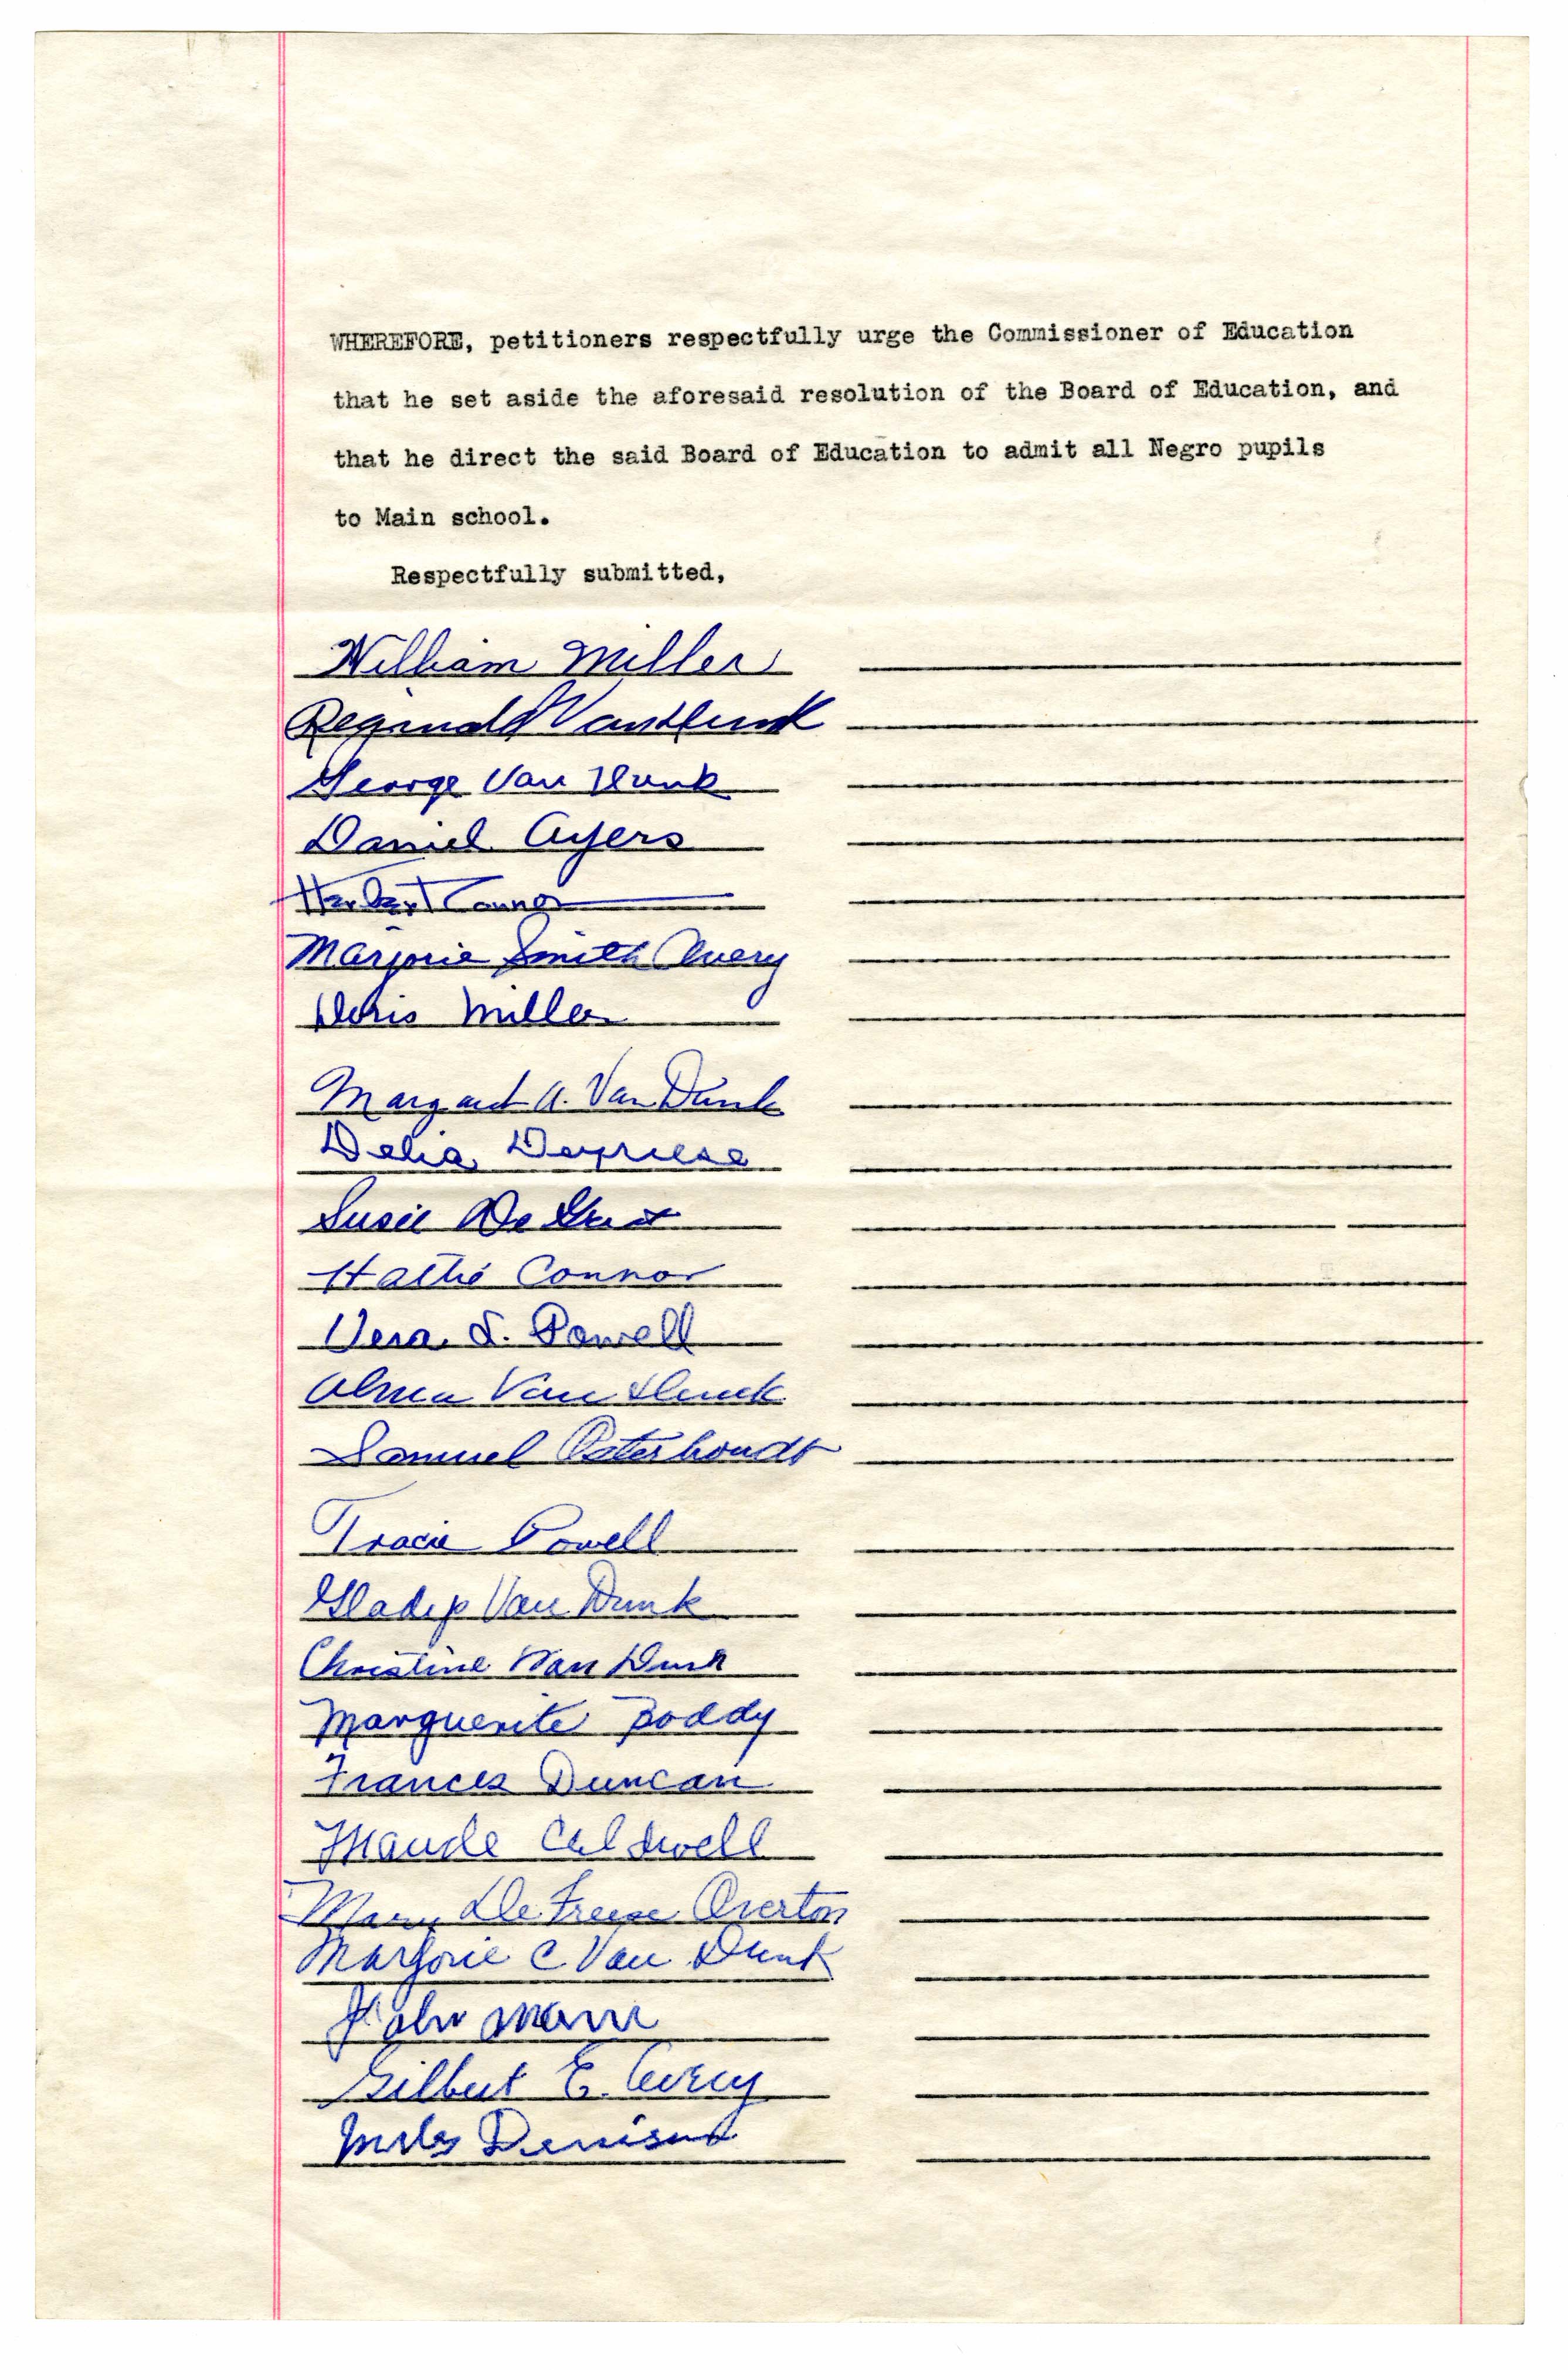 WHEREFORE, petitioners respectfully urge the Commissioner of Education
that he set aside the aforesaid resolution of the Board of Education, and
that he direct the said Board of Education to admit all Negro pupils
to Main school.
Respectfully submitted,
William Miller
Reginald VanDunk
George Van Dunk
Daniel Ayers
Herbert Connor
Marjorie Smith Avery
Doris Miller
Margaret A. Van Dunk
Delia Defriese
Susie De
Hattie Connor
Vera S. Powell
Alma Van Dunk
Samuel Osterhoudt
Tracie Powell
Gladys Van Dunk
Christine Van Dunk
Marguerite Boddy
Frances Duncan
Maude Caldwell
Mary De Freese Overton
Marjorie C Van Dunk
John Mann
Gilbert E. Avery